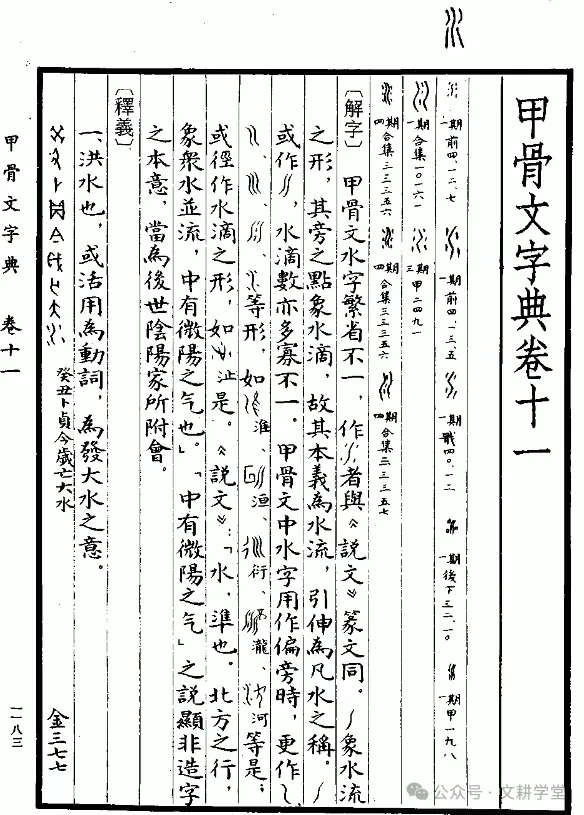 甲骨文字典卷十一
一期 前四.一二.七
一期 前四.一三.五
一期 戩四〇.一三
一期 後下三二.一〇
一期 甲一九八
一期 合集一〇一六一
三期 甲二四九一
四期 合集三三三五六
四期 合集三三三五六
四期 合集三三三五七
〔解字〕甲骨文水字繁省不一，作者與《説文》篆文同。象水流
之形，其旁之點象水滴，故其本義為水流，引伸為凡水之稱。
或作，水滴數亦多寡不一。甲骨文中水字用作偏旁時，更作
、、、等形，如淮、洹、衍、瀧、河等是；
或徑作水滴之形，如沚是。《説文》：「水，準也。北方之行，
象衆水並流，中有微陽之气也。」「中有微陽之气」之説顯非造字
之本意，當為後世陰陽家所附會。
〔釋義〕
一、洪水也，或活用為動詞，為發大水之意。
癸丑卜貞今歲亡大水 金三七七
甲骨文字典 卷十一
一一八三
公众号·文耕学堂